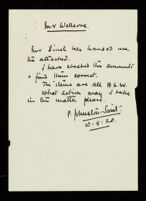 Mr Wellcome.
Mr Linel has handed me
the attached.
I have checked the amounts
& find them correct.
The items are all H.S.W.
What action may I take
in the matter please.
P. Johnston-Saint